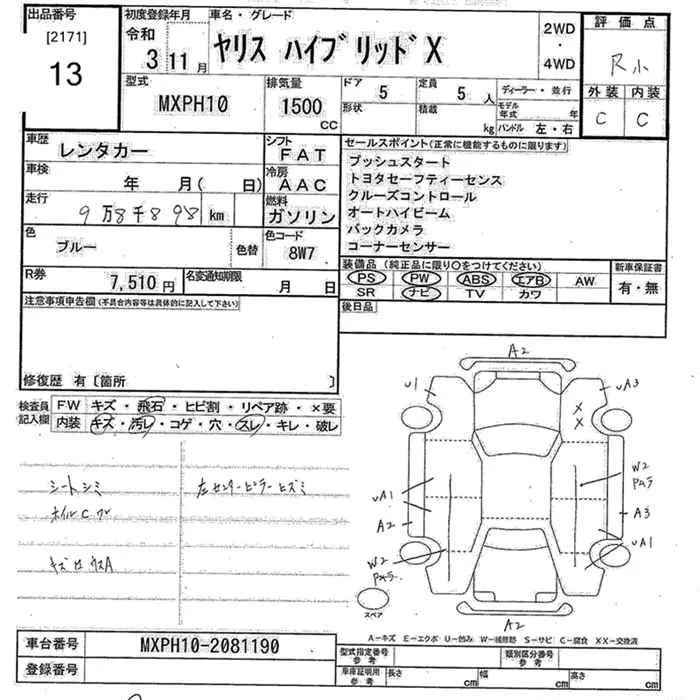 出品番号
[2171]
13
初度登録年月
令和
3 11 月
車名・グレード
ヤリス ハイブリッドX
2WD
・
4WD
評価点
R小
外装 内装
C C
型式
MXPH10
排気量
1500
CC
ドア
5
形状
定員
5 人
積載
kg
ディーラー・並行
モデル
年式 年
ハンドル 左・右
車歴
レンタカー
シフト
FAT
車検
年 月( 日)
冷房
AAC
走行
9万8千898 km
燃料
ガソリン
色
ブルー
色替
色コード
8W7
R券
7,510 円
名変通知期限
月 日
セールスポイント(正常に機能するものに限ります)
プッシュスタート
トヨタセーフティーセンス
クルーズコントロール
オートハイビーム
バックカメラ
コーナーセンサー
装備品(純正品に限り○をつけてください)
PS PW ABS エアB AW
SR ナビ TV カワ
新車保証書
有・無
後日品
注意事項申告欄(不具合内容等は具体的に記入して下さい)
修復歴 有〔箇所 〕
検査員
記入欄
FW キズ・飛石・ヒビ割・リペア跡・×要
内装 キズ・汚レ・コゲ・穴・スレ・キレ・破レ
シートシミ
ホイルC
左センターピラーヒズミ
A2
U1
UA3
X
X
W2
UA1
A2
A3
W2
UA1
A2
スペア
A−キズ E−エクボ U−凹み W−補修跡 S−サビ C−腐食 XX−交換済
車台番号
MXPH10-2081190
登録番号
型式指定番号
参考
類別区分番号
参考
車庫証明用
参考
長さ cm
幅 cm
高さ cm